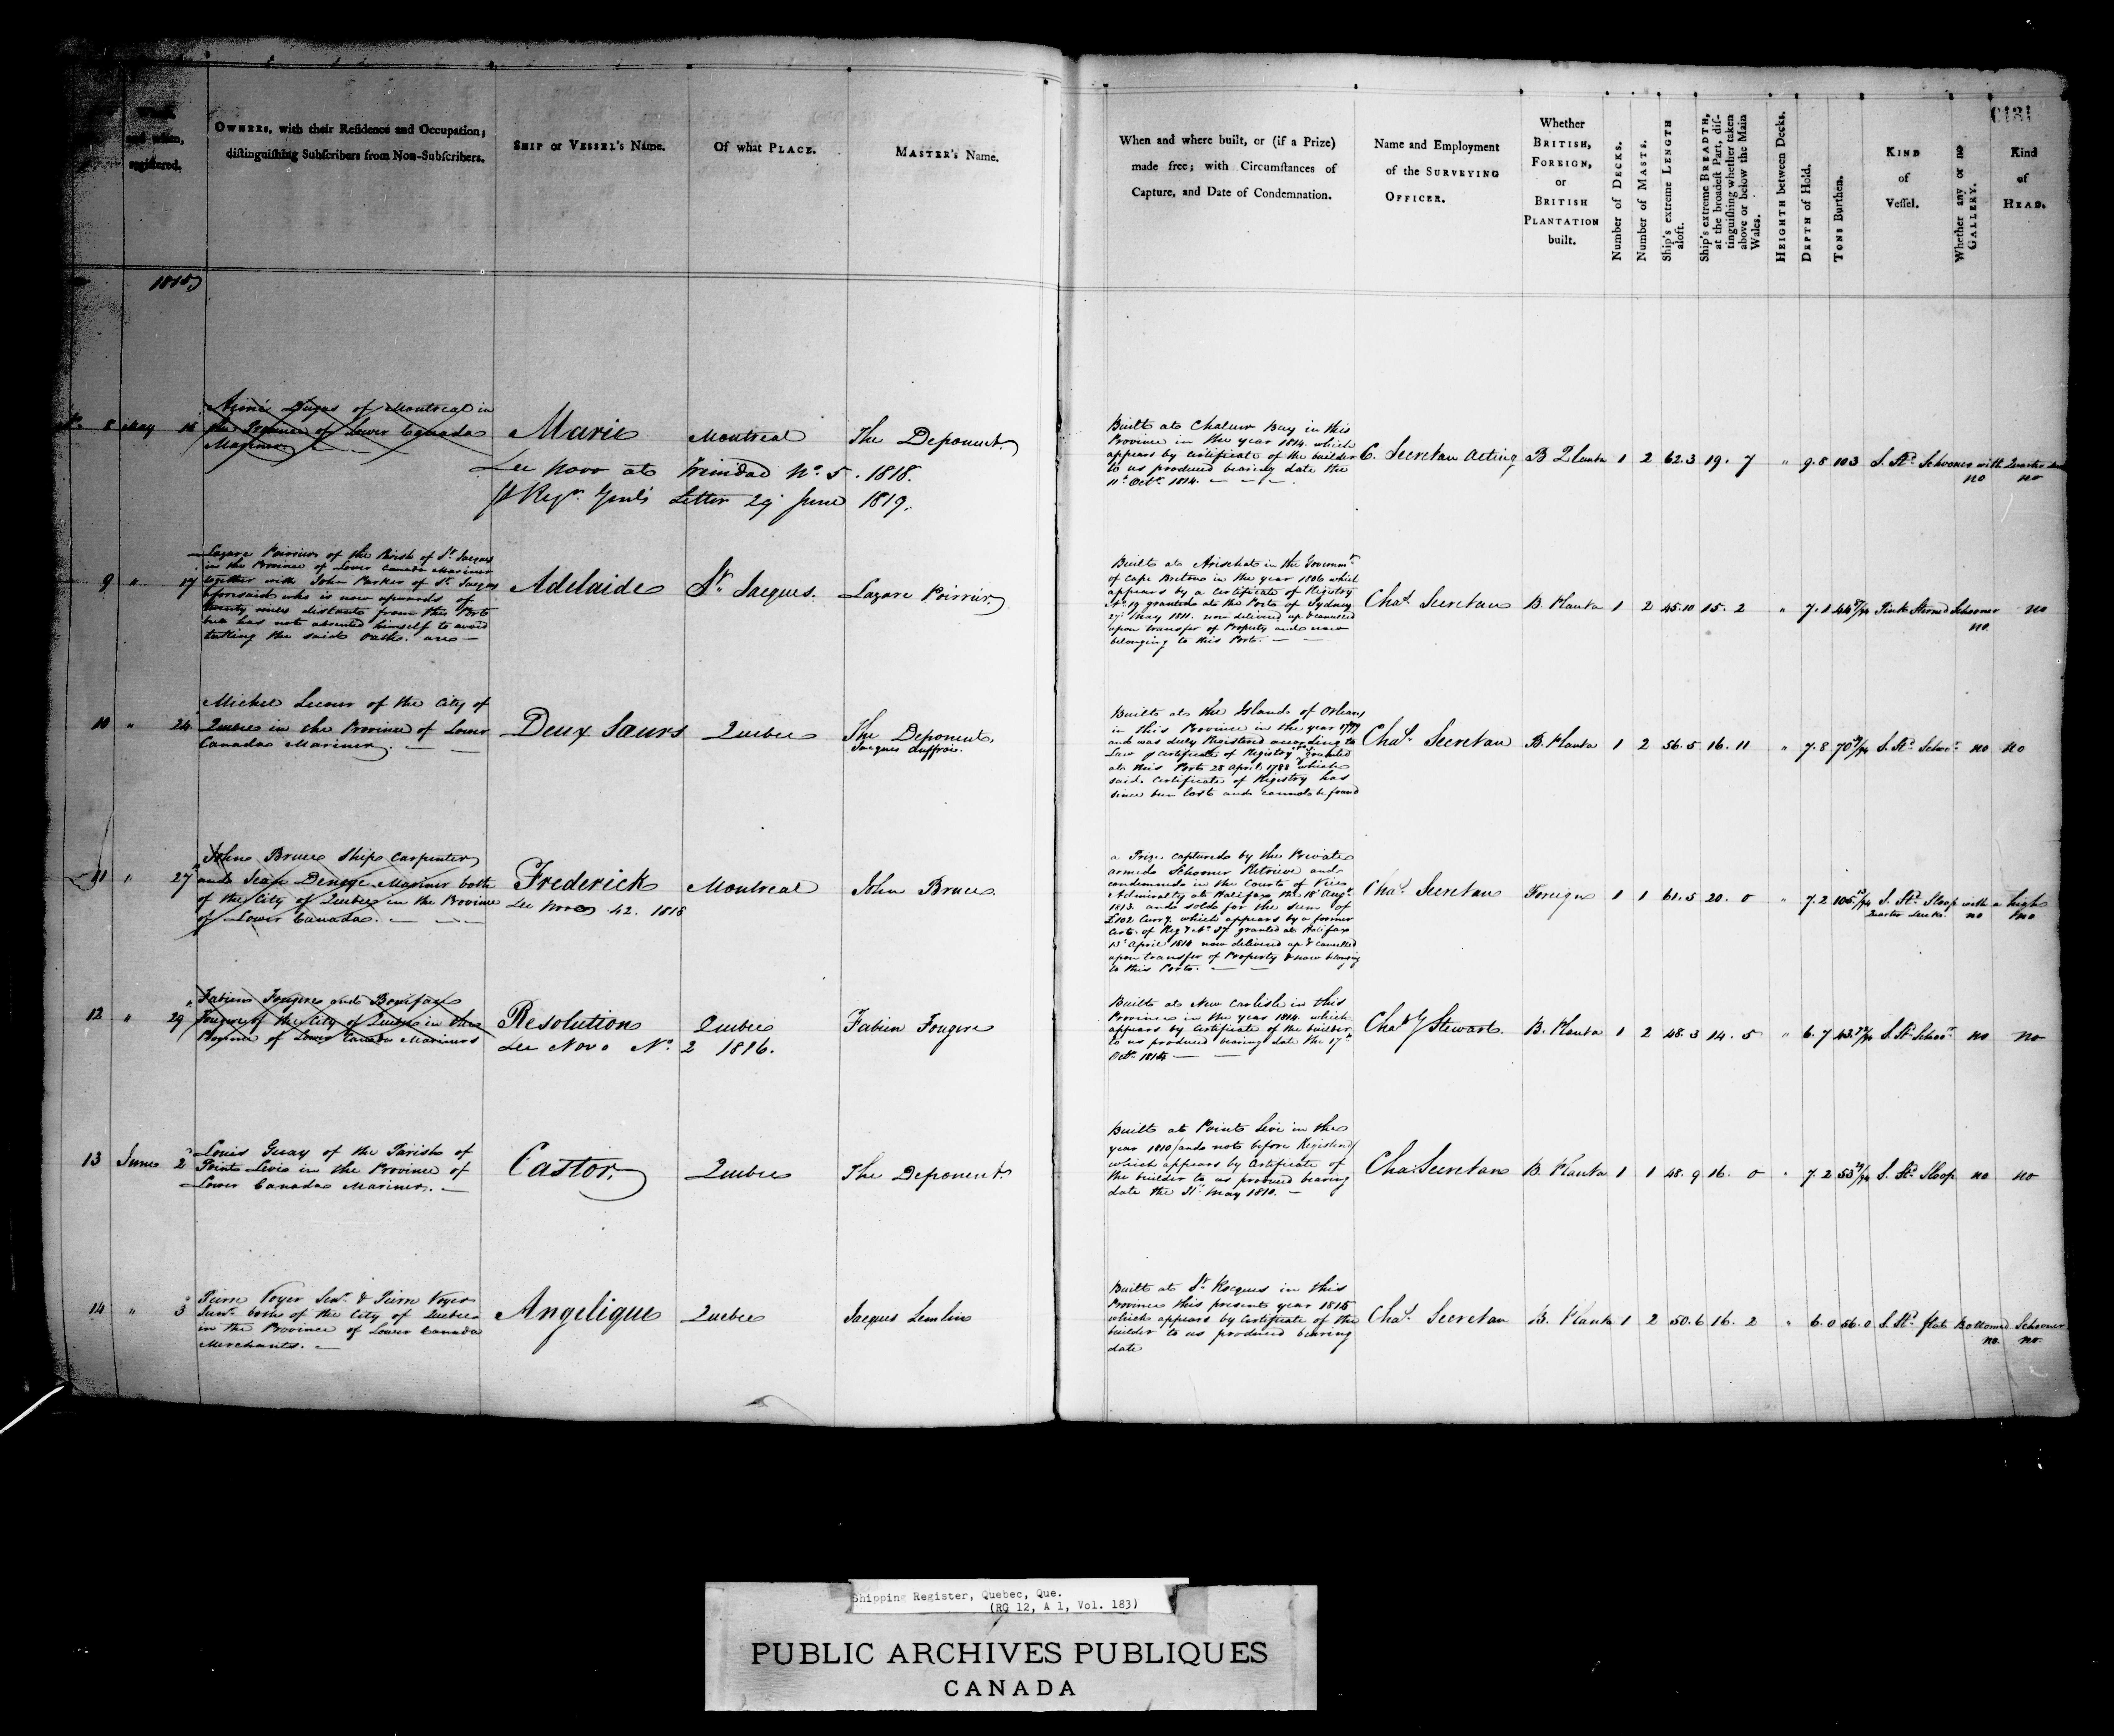 and when,
registered.
OWNERS, with their Residence and Occupation;
distinguishing Subscribers from Non-Subscribers.
SHIP or VESSEL's Name.
Of what PLACE.
MASTER's Name.
When and where built, or (if a Prize)
made free; with Circumstances of
Capture, and Date of Condemnation.
Name and Employment
of the SURVEYING
OFFICER.
Whether
BRITISH,
FOREIGN,
or
BRITISH
PLANTATION
built.
Number of DECKS.
Number of MASTS.
Ship's extreme LENGTH
aloft.
Ship's extreme BREADTH,
at the broadest Part, dis-
tinguishing whether taken
above or below the Main
Wales.
HEIGHTH between Decks.
DEPTH of Hold.
TONS Burthen.
KIND
of
Vessel.
Whether any or no
GALLERY.
Kind
of
HEAD.
1815
8 May 15
Aimé Dugas of Montreal in
the Province of Lower Canada
Mariner
Marie
Montreal
The Deponent
See Novo at Trinidad No. 5. 1818.
pr Regr. Genl's Letter 29 June 1819.
Built at Chaleur Bay in this
Province in the year 1814 which
appears by Certificate of the builder
to us produced bearing date the
11th Octr. 1814.
C. Secretan Acting
B Planta 1 2 62.3 19. 7 " 9.8 103 S. Std. Schooner with Quarter
no no
9 " 17
Lazare Poirrier of the Parish of St. Jacques
in the Province of Lower Canada Mariner
together with John Parker of St. Jacques
aforesaid who is now upwards of
twenty miles distant from this Port
but has not absented himself to avoid
taking the said Oath. are
Adelaide
St. Jacques.
Lazare Poirrier
Built at Arichat in the Governmt.
of Cape Breton in the year 1806 which
appears by a Certificate of Registry
No. 19 granted at the Port of Sydney
27th May 1811. now delivered up & cancelled
upon transfer of Property and now
belonging to this Port.
Chas. Secretan
B. Planta 1 2 45.10 15. 2 " 7.1 44 Pink Sterned Schooner no
no.
10 " 24
Michel Lecour of the City of
Quebec in the Province of Lower
Canada Mariner
Deux Saurs
Quebec
The Deponent,
Jacques duffrai.
Built at the Island of Orleans
in this Province in the year
and was duly Registered according to
Law pr Certificate of Registry granted
at this Port 28 April 1788 which
said Certificate of Registry has
since been lost and cannot be found
Chas. Secretan
B. Planta 1 2 56.5 16. 11 " 7.8 70 S. Std. Schoor. no no
11 " 27
John Bruce Ship Carpenter
and Jean Mariner both
of the City of Quebec in the Province
of Lower Canada.
Frederick
See Novo 42. 1818
Montreal
John Bruce
a Prize captured by the Private
armed Schooner Retrieve and
condemned in the Court of Vice
Admiralty at Halifax the 18th Augt.
1813 and sold for the sum of
£102 Curry. which appears by a former
Cert. of Regy No. 37 granted at Halifax
13th April 1814 now delivered up & cancelled
upon transfer of Property & now belonging
to this Port.
Chas. Secretan
Foreign 1 1 61.5 20. 0 " 7.2 105 S. Std. Sloop with a high
Quarter Deck. no no
12 " 29
Fabien Fougere and Boniface
Fougere of the City of Quebec in the
Province of Lower Canada Mariners
Resolution
See Novo No. 2 1816.
Quebec
Fabien Fougere
Built at New Carlisle in this
Province in the year 1814. which
appears by Certificate of the builder
to us produced bearing date the 17th
Octr. 1814
Chas G Stewart
B. Planta 1 2 48.3 14. 5 " 6.7 43 S. Std. Schoor. no no
13 June 2
Louis Guay of the Parish of
Point Levie in the Province of
Lower Canada Mariner.
Castor
Quebec
The Deponent.
Built at Point Levi in the
year 1810 (and not before Registered)
which appears by Certificate of
the builder to us produced bearing
date the 31st May 1810.
Chas. Secretan
B. Planta 1 1 48.9 16. 0 " 7.2 53 S. Std. Sloop no no
14 " 3
Pierre Voyer Senr. & Pierre Voyer
Junr. both of the City of Quebec
in the Province of Lower Canada
Merchants.
Angelique
Quebec
Jacques Lemlin
Built at St. Rocques in this
Province this present year 1815
which appears by Certificate of the
builder to us produced bearing
date
Chas. Secretan
B. Planta 1 2 50.6 16. 2 " 6.0 56.0 S. Std. flat Bottomed Schooner
no. no.
Shipping Register, Quebec, Que.
(RG 12, A 1, Vol. 183)
PUBLIC ARCHIVES PUBLIQUES
CANADA